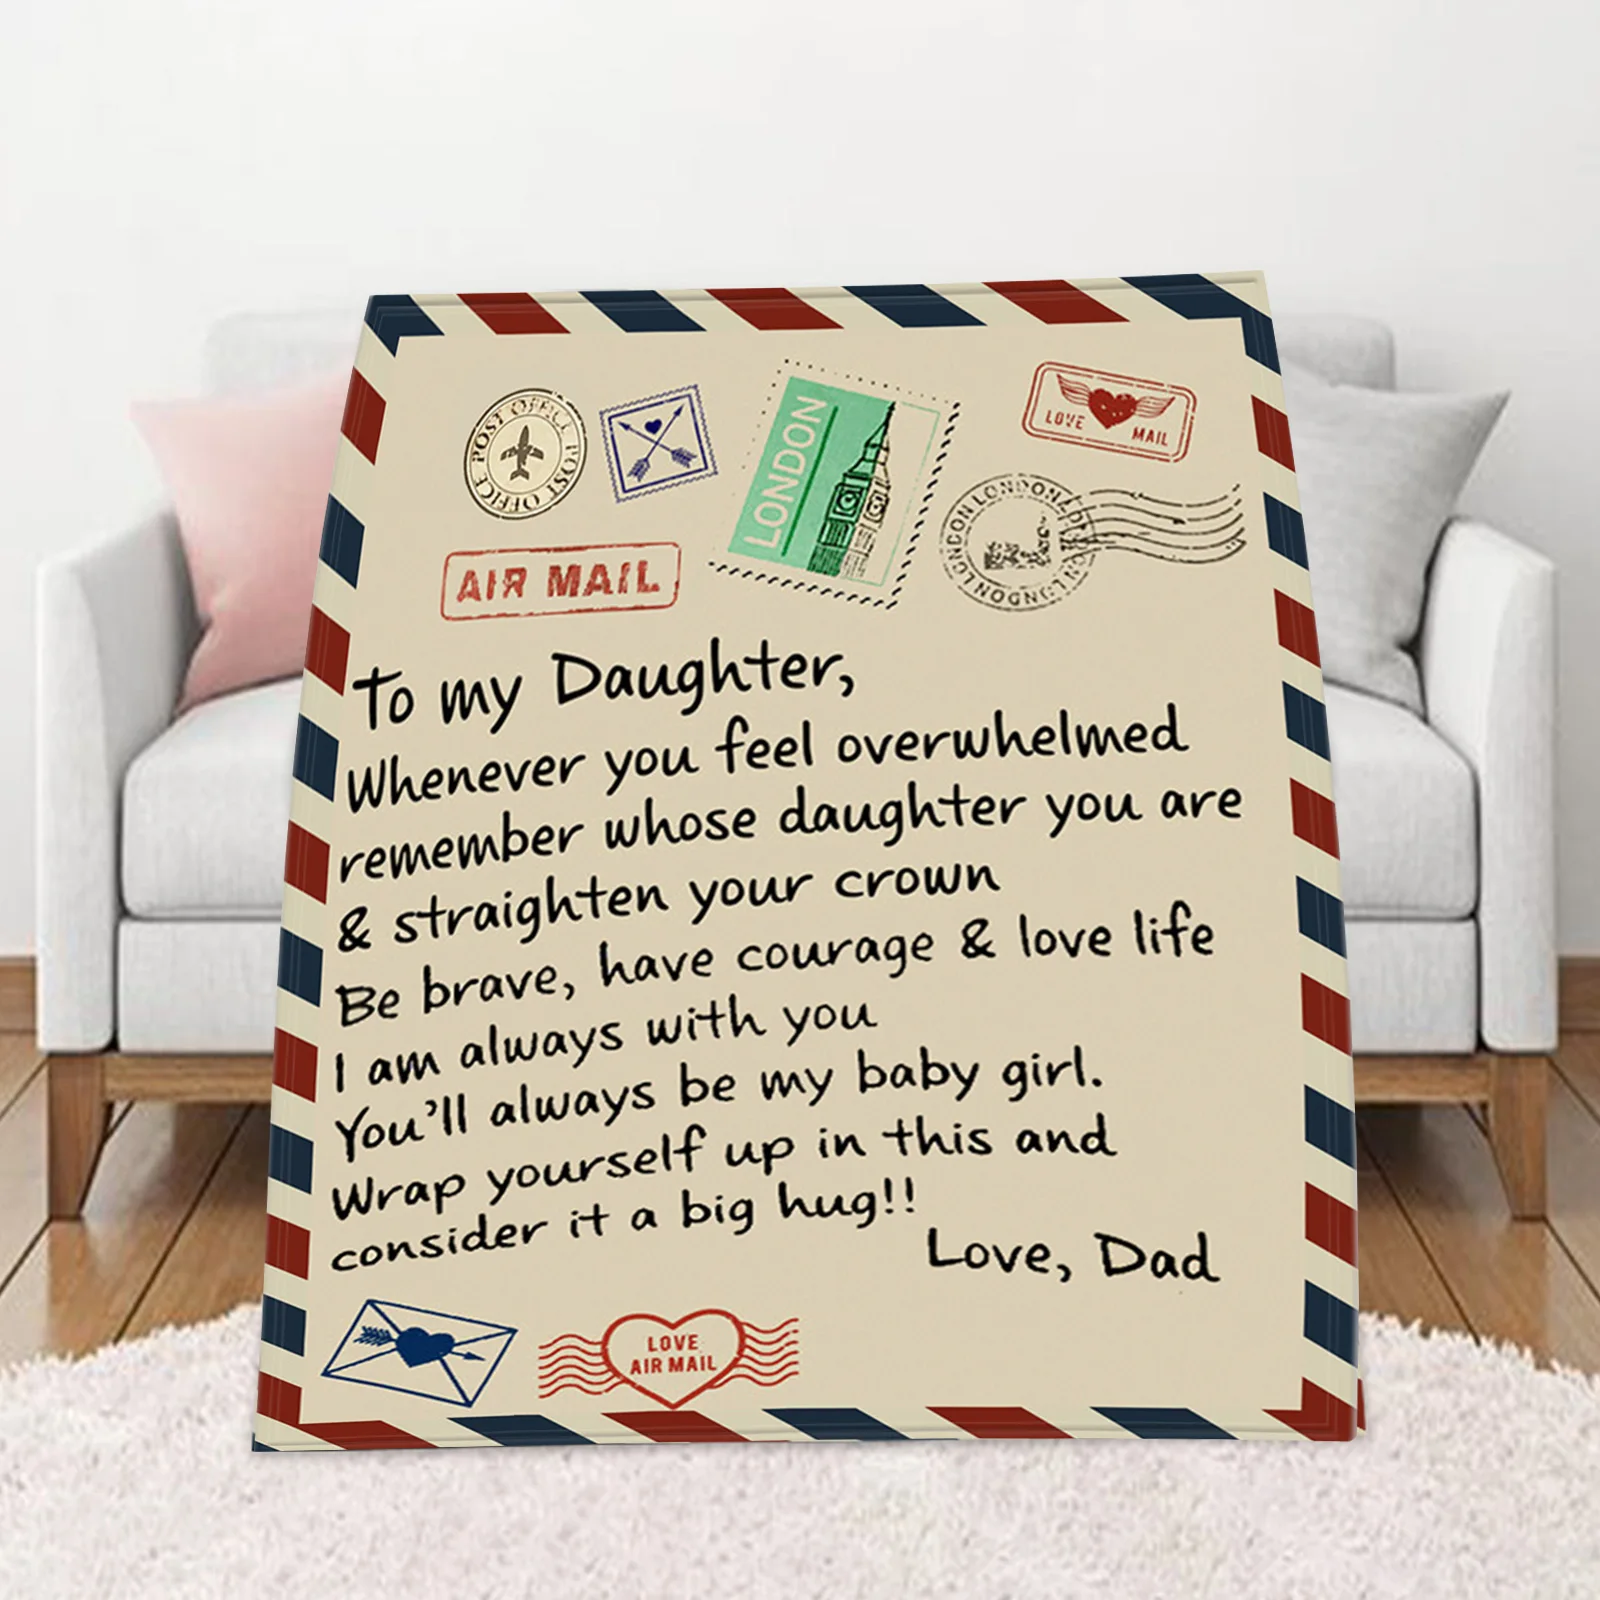 POST OFFICE POST OFFICE
LONDON
LOVE
MAIL
LONDON LONDON LONDON LONDON
AIR MAIL
To my Daughter,
Whenever you feel overwhelmed
remember whose daughter you are
& straighten your crown
Be brave, have courage & love life
I am always with you
You'll always be my baby girl.
Wrap yourself up in this and
consider it a big hug!!
Love, Dad
LOVE
AIR MAIL